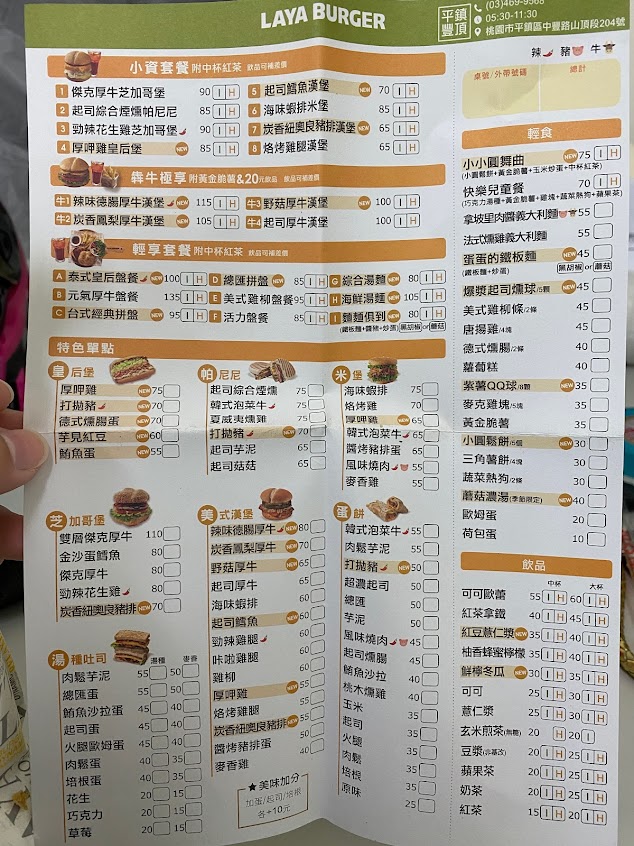 LAYA BURGER
平鎮
豐頂
(03)469-9568
05:30-11:30
桃園市平鎮區中豐路山頂段204號
辣 豬 牛
桌號/外帶號碼 總計
小資套餐 附中杯紅茶 飲品可補差價
1 傑克厚牛芝加哥堡 90 I H
2 起司綜合煙燻帕尼尼 85 I H
3 勁辣花生雞芝加哥堡 90 I H
4 厚呷雞皇后堡 NEW 85 I H
5 起司鱈魚漢堡 NEW 70 I H
6 海味蝦排米堡 85 I H
7 炭香紐奧良豬排漢堡 NEW 65 I H
8 烙烤雞腿漢堡 65 I H
犇牛極享 附黃金脆薯&20元飲品 飲品可補差價
牛1 辣味德腸厚牛漢堡 NEW 115 I H
牛2 炭香鳳梨厚牛漢堡 NEW 105 I H
牛3 野菇厚牛漢堡 NEW 100 I H
牛4 起司厚牛漢堡 100 I H
輕享套餐 附中杯紅茶 飲品可補差價
A 泰式皇后盤餐 NEW 100 I H
B 元氣厚牛盤餐 135 I H
C 台式經典拼盤 NEW 95 I H
D 總匯拼盤 NEW 85 I H
E 美式雞柳盤餐 95 I H
F 活力盤餐 85 I H
G 綜合湯麵 NEW 80 I H
H 海鮮湯麵 NEW 105 I H
I 麵麵俱到 NEW 80 I H
(鐵板麵+醬豬+炒蛋) 黑胡椒or蘑菇
特色單點
皇后堡
厚呷雞 NEW 75
打拋豬 NEW 70
德式燻腸蛋 NEW 70
芋見紅豆 NEW 60
鮪魚蛋 NEW 55
帕尼尼
起司綜合煙燻 75
韓式泡菜牛 75
夏威夷燻雞 75
打拋豬 NEW 70
起司芋泥 65
起司菇菇 65
米堡
海味蝦排 75
烙烤雞 70
厚呷雞 NEW 65
韓式泡菜牛 65
醬烤豬排蛋 65
風味燒肉 65
麥香雞 55
芝加哥堡
雙層傑克厚牛 110
金沙蛋鱈魚 80
傑克厚牛 80
勁辣花生雞 80
炭香紐奧良豬排 NEW 70
美式漢堡
辣味德腸厚牛 NEW 80
炭香鳳梨厚牛 NEW 70
野菇厚牛 NEW 65
起司厚牛 65
海味蝦排 65
起司鱈魚 NEW 60
勁辣雞腿 60
咔啦雞腿 60
雞柳 60
厚呷雞 NEW 55
烙烤雞腿 55
炭香紐奧良豬排 NEW 55
醬烤豬排蛋 50
麥香雞 40
蛋餅
韓式泡菜牛 55
肉鬆芋泥 55
打拋豬 NEW 50
超濃起司 50
總匯 50
芋泥 50
風味燒肉 45
起司燻腸 45
鮪魚沙拉 40
桃木燻雞 40
玉米 35
起司 35
火腿 35
肉鬆 35
培根 35
原味 25
湯種吐司 湯種 麥香
肉鬆芋泥 55 50
總匯蛋 55 50
鮪魚沙拉蛋 50 45
起司蛋 45 40
火腿歐姆蛋 45 40
肉鬆蛋 40 35
培根蛋 40 35
花生 20 15
巧克力 20 15
草莓 20 15
★美味加分
加蛋/起司/培根
各+10元
輕食
小小圓舞曲 NEW 75 I H
(小圓鬆餅+黃金脆薯+玉米炒蛋+中杯紅茶)
快樂兒童餐 70 I H
(巧克力湯種+黃金脆薯+雞塊+蔬菜熱狗+蘋果茶)
拿坡里肉醬義大利麵 55
法式燻雞義大利麵 55
蛋蛋的鐵板麵 NEW 45
(鐵板麵+炒蛋) 黑胡椒or蘑菇
爆漿起司燻球/5顆 NEW 45
美式雞柳條/2條 45
唐揚雞/4塊 45
德式燻腸/2條 40
蘿蔔糕 40
紫薯QQ球/8顆 NEW 35
麥克雞塊/5塊 35
黃金脆薯 35
小圓鬆餅/5個 NEW 30
三角薯餅/4塊 30
蔬菜熱狗/2條 30
蘑菇濃湯(季節限定) NEW 40
歐姆蛋 20
荷包蛋 10
飲品
中杯 大杯
可可歐蕾 55 I H 60 I H
紅茶拿鐵 40 I H 45 I H
紅豆薏仁漿 NEW 35 I H 40 I H
柚香蜂蜜檸檬 35 I H 40 I H
鮮檸冬瓜 NEW 30 I H 35 I H
可可 25 I H 30 I H
薏仁漿 25 I H 30 I H
玄米煎茶(無糖) 20 H 20 I
豆漿(非基改) 20 I H 25 I H
蘋果茶 20 I H 25 I H
奶茶 20 I H 25 I H
紅茶 15 I H 20 I H